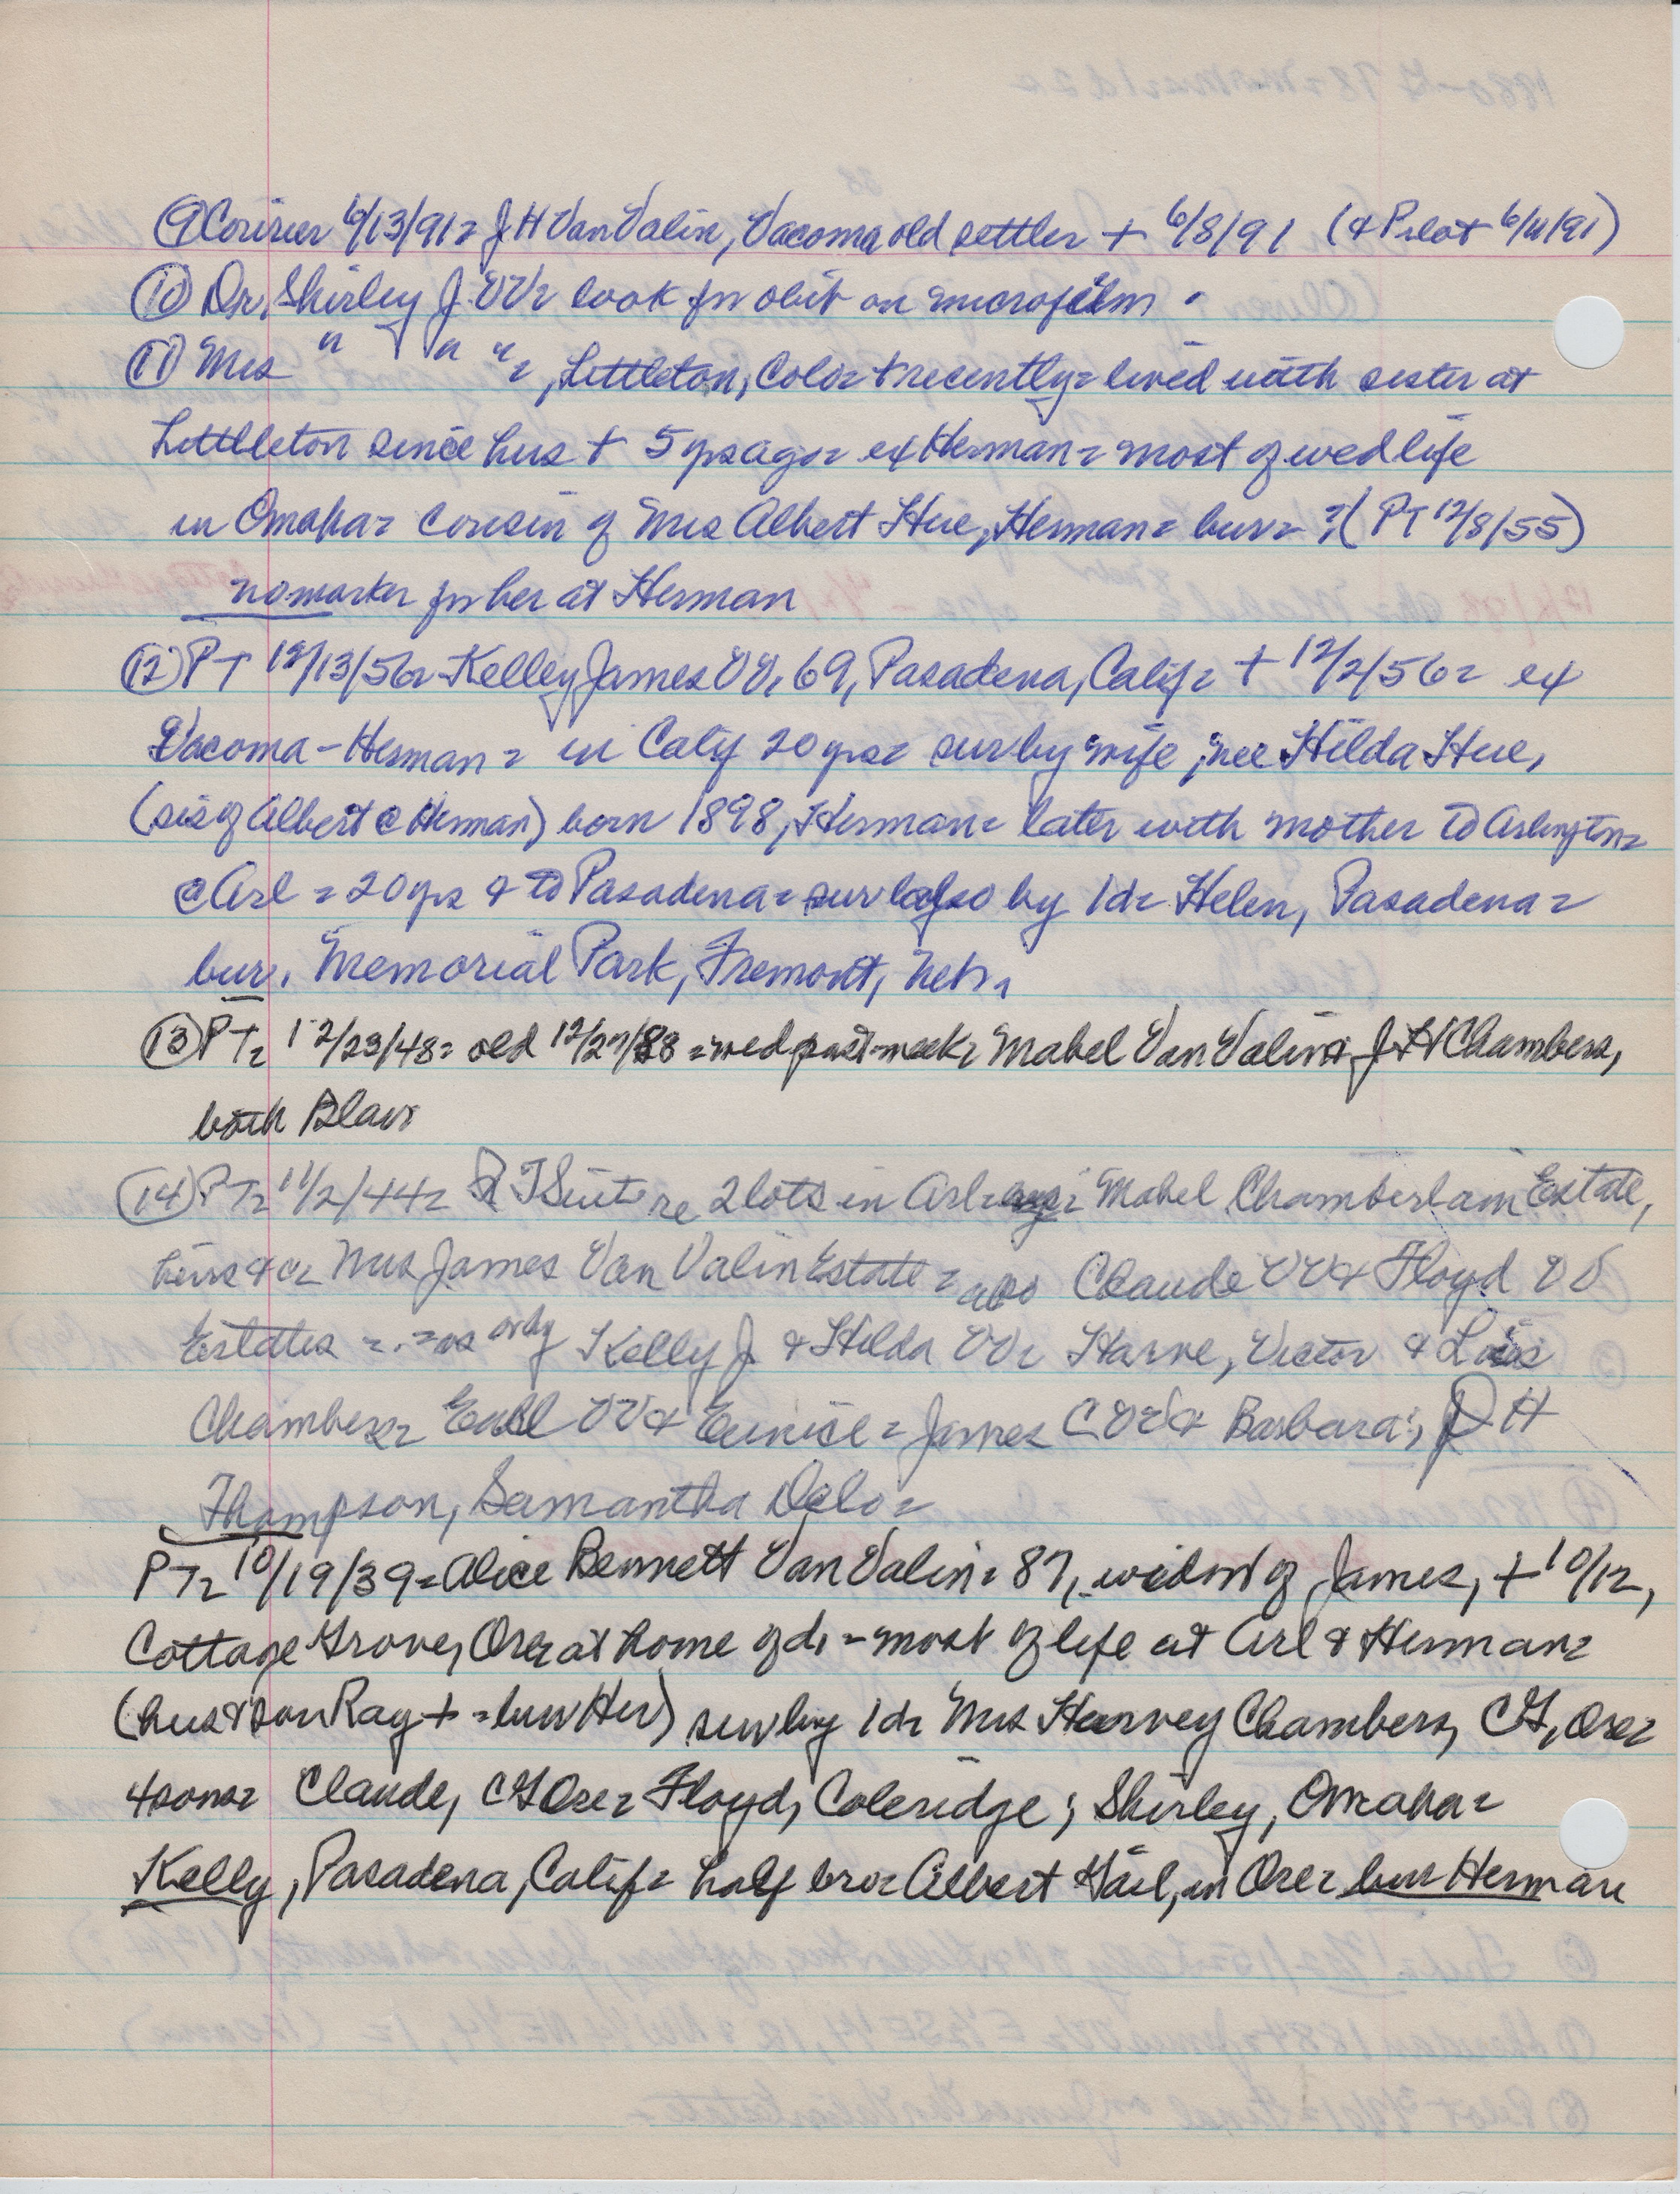 ⑨ Courier 6/13/91= J H Van Valin, Vacoma old settler + 6/8/91 (& Pilot 6/11/91)
⑩ Dr. Shirley J. VV= look for obit on microfilm.
⑪ Mrs " " "=, Littleton, Colo= + recently= lived with sister at
Littleton since hus + 5 yrs ago= ex Herman= most of wed life
in Omaha= cousin of Mrs Albert Hue, Herman= bur= ?(PT 12/8/55)
no marker for her at Herman
⑫ PT 12/13/56= Kelley James VV, 69, Pasadena, Calif= + 12/2/56= ex
Vacoma-Herman= in Calif 20 yrs= sur by wife, nee Hilda Hue,
(sis of Albert @ Herman) born 1898, Herman= later with mother to Arlington=
@ Arl = 20 yrs & to Pasadena= sur also by 1 d= Helen, Pasadena=
bur. Memorial Park, Fremont, Neb.
⑬ PT= 12/23/48= old 12/27/88 = wed past week= Mabel Van Valin & J H Chambers,
both Blair
⑭ PT= 11/2/44= Suit re 2 lots in Arl= Mabel Chamberlain Estate,
heirs &c= Mrs James Van Valin Estate= also Claude VV & Floyd VV
Estates = . = as only Kelly J. & Hilda VV= Harve, Victor & Lois
Chambers= Earl VV & Eunice= James C VV & Barbara; H
Thompson, Samantha
PT= 10/19/39= Alice Bennett Van Valin= 87, widow of James, + 10/12,
Cottage Grove, Ore= at home of d. = most of life at Arl & Herman=
(hus & son Ray + = bur Her) sur by 1 d= Mrs Harvey Chambers, CG, Ore=
4 sons= Claude, CG Ore= Floyd, Coleridge; Shirley, Omaha=
Kelly, Pasadena, Calif= half bro= Albert in Ore= bur Herman